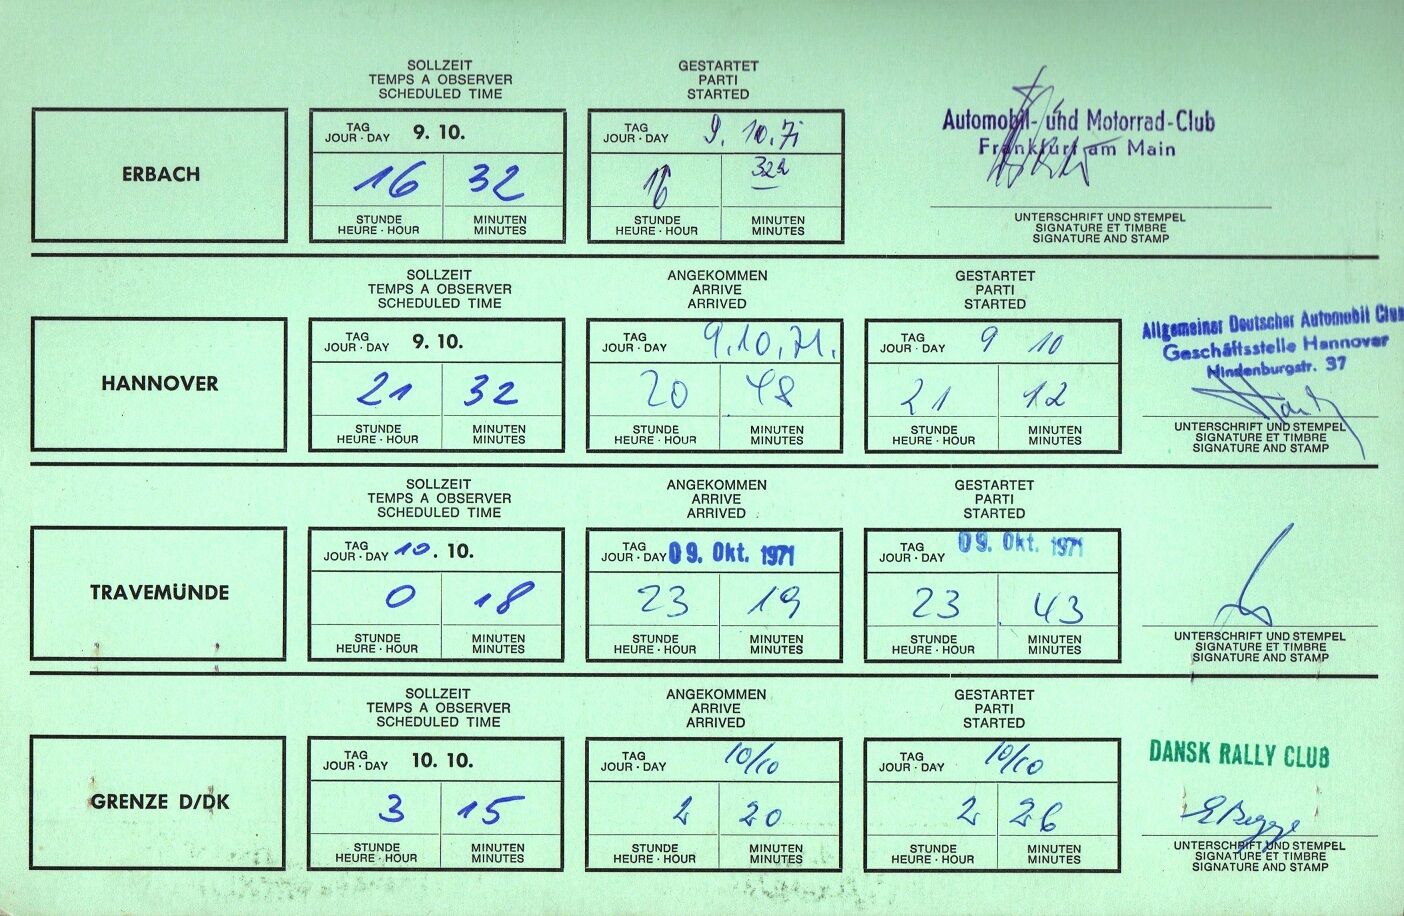 SOLLZEIT
TEMPS A OBSERVER
SCHEDULED TIME
GESTARTET
PARTI
STARTED
ERBACH
TAG
JOUR · DAY 9. 10.
16 32
STUNDE
HEURE · HOUR
MINUTEN
MINUTES
TAG
JOUR · DAY 9. 10. 71
16
STUNDE
HEURE · HOUR
MINUTEN
MINUTES
Automobil- und Motorrad-Club
Frankfurt am Main
UNTERSCHRIFT UND STEMPEL
SIGNATURE ET TIMBRE
SIGNATURE AND STAMP
SOLLZEIT
TEMPS A OBSERVER
SCHEDULED TIME
ANGEKOMMEN
ARRIVE
ARRIVED
GESTARTET
PARTI
STARTED
HANNOVER
TAG
JOUR · DAY 9. 10.
21 32
STUNDE
HEURE · HOUR
MINUTEN
MINUTES
TAG
JOUR · DAY 9.10.71.
20 48
STUNDE
HEURE · HOUR
MINUTEN
MINUTES
TAG
JOUR · DAY 9 10
21 12
STUNDE
HEURE · HOUR
MINUTEN
MINUTES
Allgemeiner Deutscher Automobil Club
Geschäftsstelle Hannover
Hindenburgstr. 37
UNTERSCHRIFT UND STEMPEL
SIGNATURE ET TIMBRE
SIGNATURE AND STAMP
SOLLZEIT
TEMPS A OBSERVER
SCHEDULED TIME
ANGEKOMMEN
ARRIVE
ARRIVED
GESTARTET
PARTI
STARTED
TRAVEMÜNDE
TAG
JOUR · DAY 10. 10.
0 18
STUNDE
HEURE · HOUR
MINUTEN
MINUTES
TAG
JOUR · DAY 09. Okt. 1971
23 19
STUNDE
HEURE · HOUR
MINUTEN
MINUTES
TAG
JOUR · DAY 09. Okt. 1971
23 43
STUNDE
HEURE · HOUR
MINUTEN
MINUTES
UNTERSCHRIFT UND STEMPEL
SIGNATURE ET TIMBRE
SIGNATURE AND STAMP
SOLLZEIT
TEMPS A OBSERVER
SCHEDULED TIME
ANGEKOMMEN
ARRIVE
ARRIVED
GESTARTET
PARTI
STARTED
GRENZE D/DK
TAG
JOUR · DAY 10. 10.
3 15
STUNDE
HEURE · HOUR
MINUTEN
MINUTES
TAG
JOUR · DAY 10/10
2 20
STUNDE
HEURE · HOUR
MINUTEN
MINUTES
TAG
JOUR · DAY 10/10
2 26
STUNDE
HEURE · HOUR
MINUTEN
MINUTES
DANSK RALLY CLUB
UNTERSCHRIFT UND STEMPEL
SIGNATURE ET TIMBRE
SIGNATURE AND STAMP